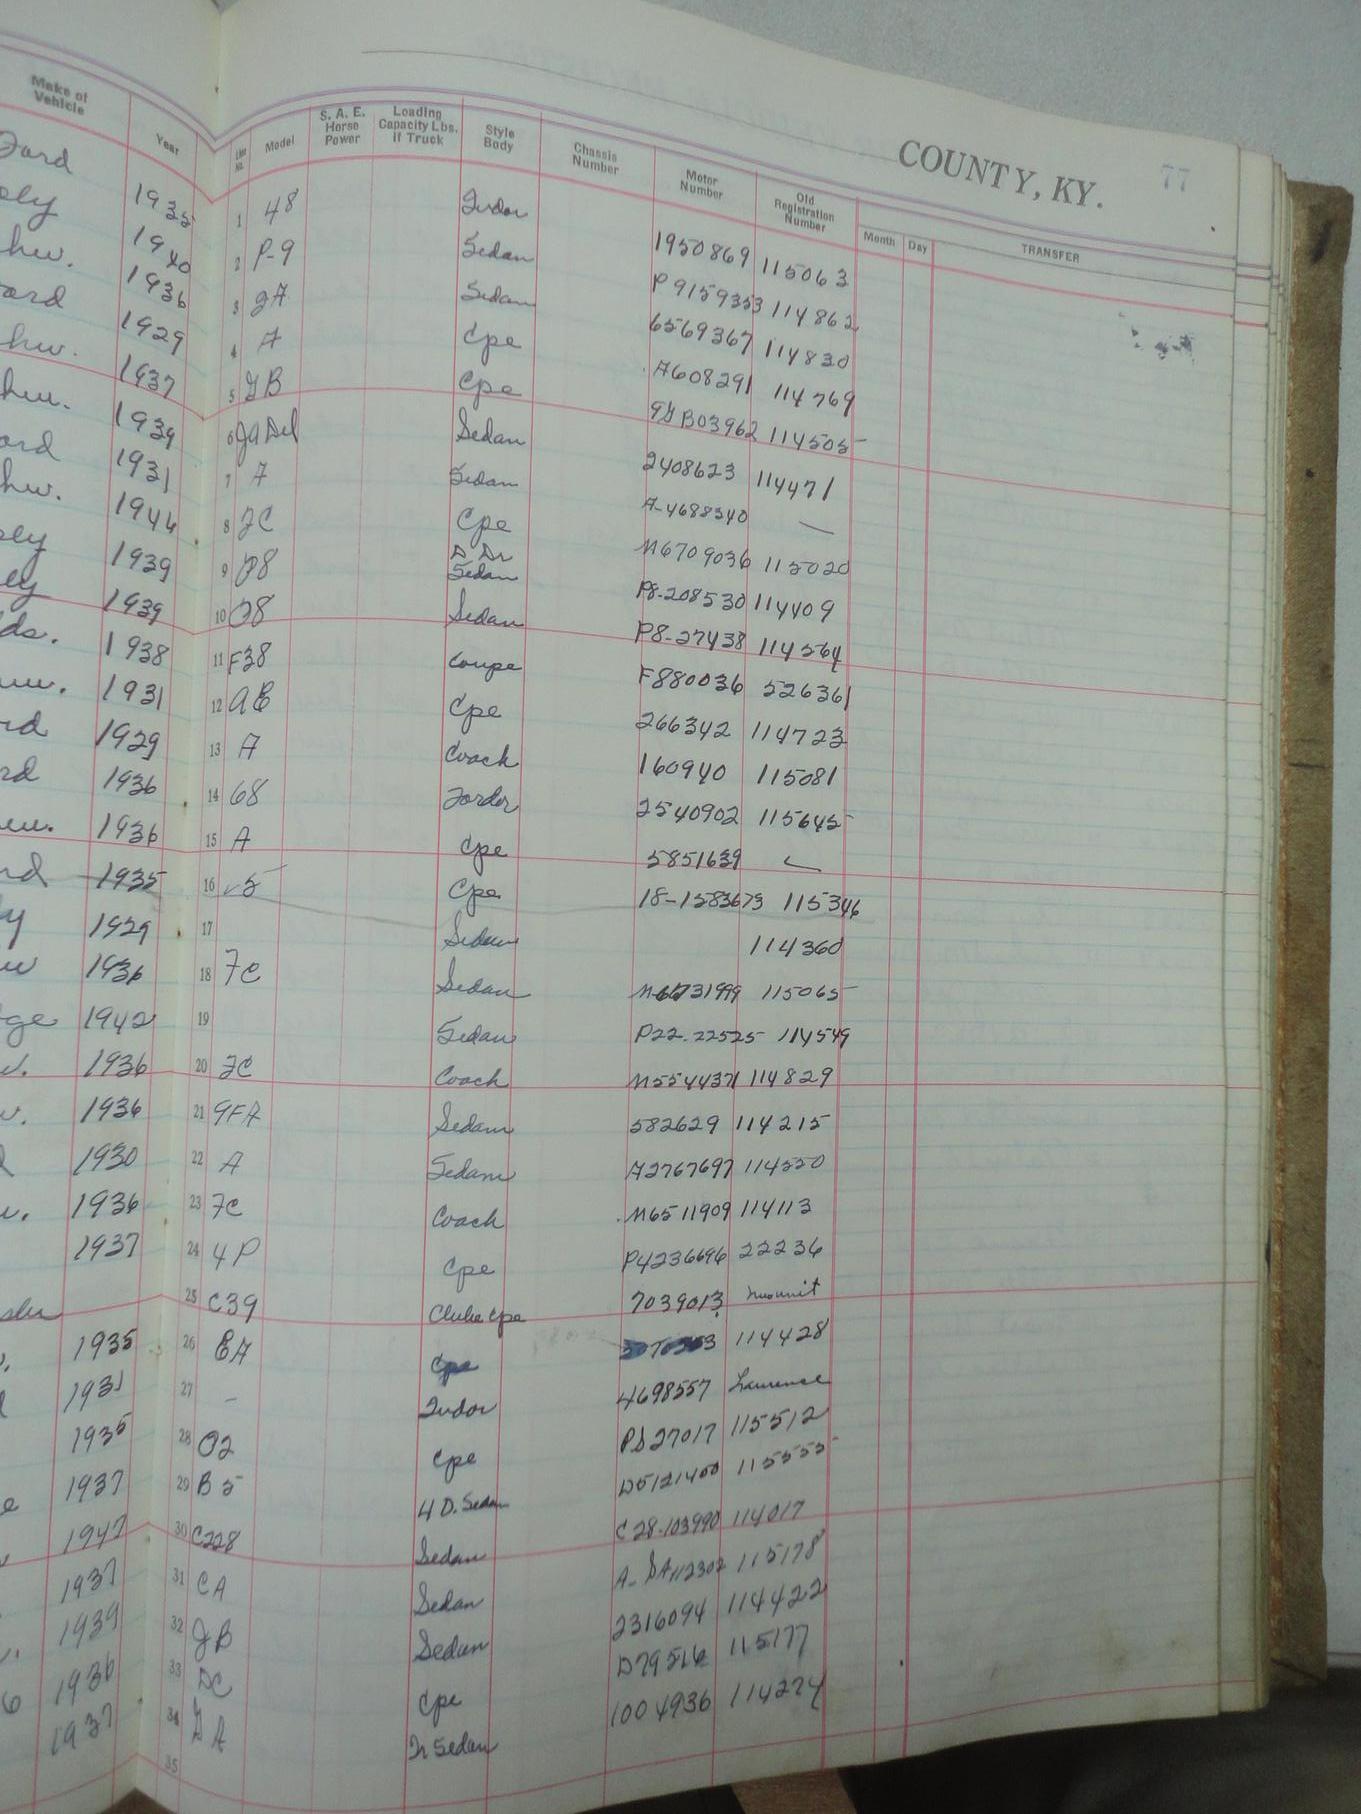 COUNTY, KY. 77
Make of Vehicle Year Line No. Model S. A. E. Horse Power Loading Capacity Lbs. if Truck Style Body Chassis Number Motor Number Old Registration Number Month Day TRANSFER
Ford 1935 1 48 Tudor 1950869 115063
1940 2 P-9 Sedan P9159353 114862
1936 3 Sedan 6569367 114830
1929 4 A Cpe A608291 114769
1937 5 GB Cpe 9GB03962 114505
1939 6 Sedan 2408623 114471
1931 7 A Sedan A-4688340 —
1944 8 Cpe M6709036 115020
1939 9 P8 Sedan P8-208530 114409
1939 10 Sedan P8-27438 114564
1938 11 F38 Coupe F880036 526361
1931 12 Cpe 266342 114723
1929 13 A Coach 160940 115081
1936 14 68 Fordor 2540902 115645
1936 15 A Cpe 5851639
1935 16 Cpe 18-1583673 115346
1929 17 Sedan 114360
1936 18 FC Sedan 115065
1942 19 Sedan P22.22525 114549
1936 20 FC Coach M5544371 114829
1936 21 Sedan 582629 114215
1930 22 A Sedan A2767697 114550
1936 23 FC Coach M6511909 114113
1937 24 4P Cpe P4236696 22236
25 C39 Club Cpe 7039013
1935 26 EA Cpe 114428
1931 27 – Tudor 4698557 Lawrence
1935 28 Cpe 115512
1937 29 B5 4 D. Sedan D5121400 115555
1947 30 C228 Sedan C28-103990 114017
1937 31 CA Sedan 115178
1939 32 JB Sedan 2316094 114422
1936 33 DC Cpe D79516 115177
1937 34 GA Sedan 1004936 114274
35